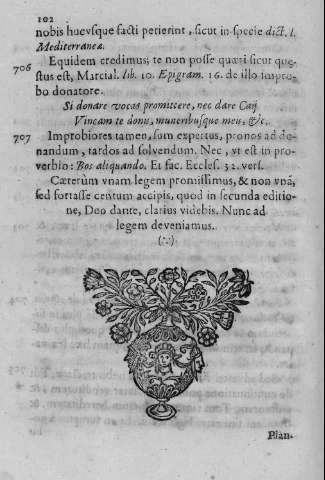 102
nobis hucvsque facti perierint, sicut in specie dict. l.
Mediterranea.
706 Equidem credimus, te non posse quæri sicut que-
stus est, Martial. lib. 10. Epigram. 16. de illo impro-
bo donatore.
Si donare vocas promittere, nec dare Caij
Vincam te donis, muneribusque meis, &c.
707 Improbiores tamen, sum expertus, pronos ad do-
nandum, tardos ad solvendum. Nec, vt est in pro-
verbio: Bos aliquando. Et fac. Eccles. 32. vers.
Cæterùm vnam legem promissimus, & non vnã,
sed fortasse centum accipis, quod in secunda editio-
ne, Deo dante, clarius videbis. Nunc ad
legem deveniamus.
(∴)
Plan-